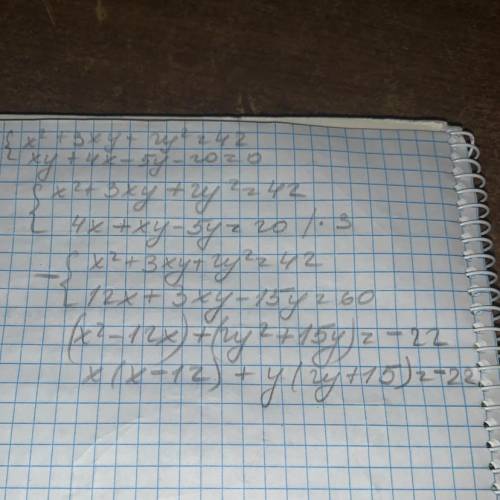 {x² + 3xy + 2y² = 42
{xy + 4x - 5y - 20 = 0
{x² + 3xy + 2y² = 42
{4x + xy - 5y = 20 / · 3
- {x² + 3xy + 2y² = 42
{12x + 3xy - 15y = 60
(x² - 12x) + (2y² + 15y) = -22
x(x - 12) + y(2y + 15) = -22